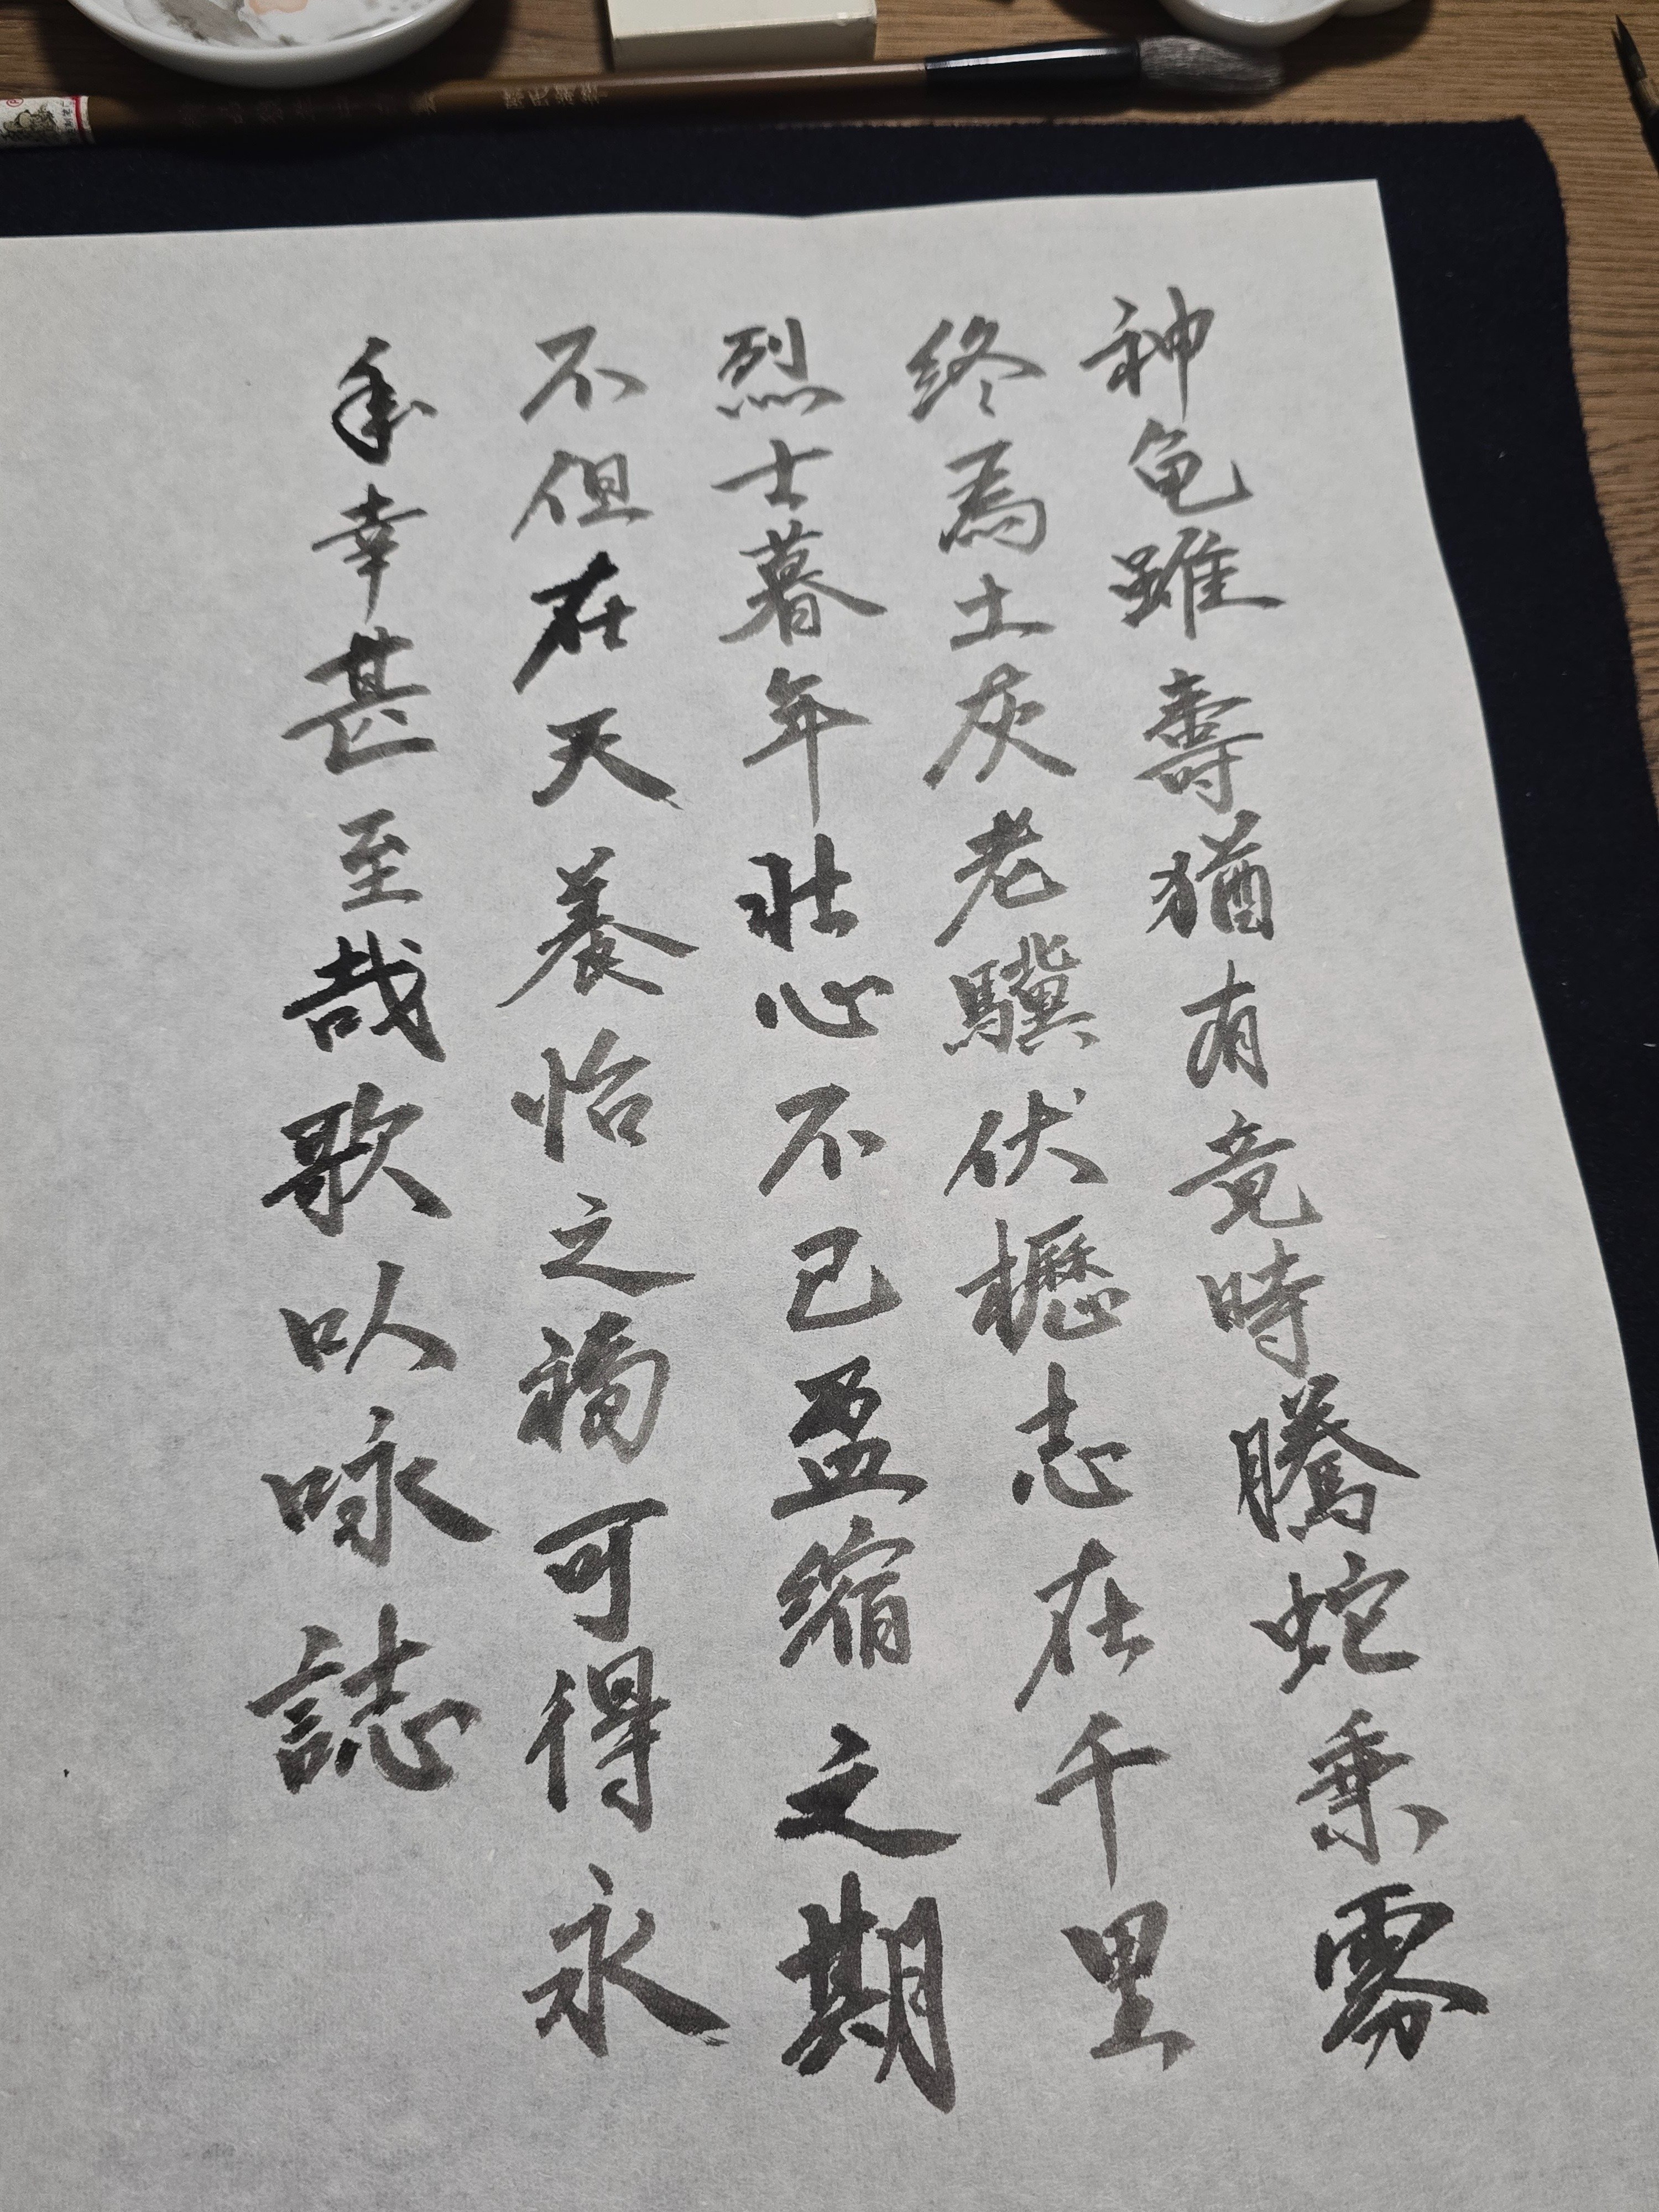 神龟雖壽猶有竟時騰蛇乘雾
終為土灰老驥伏櫪志在千里
烈士暮年壯心不已盈縮之期
不但在天養怡之福可得永
年幸甚至哉歌以咏誌